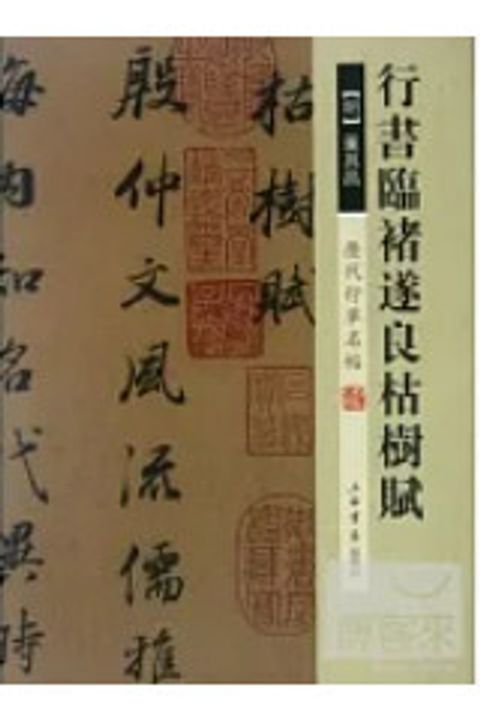 行書臨褚遂良枯樹賦
【明】董其昌
歷代行草名帖
上海書店出版社
枯樹賦
殷仲文風流儒雅
海內知名代異時
博客來